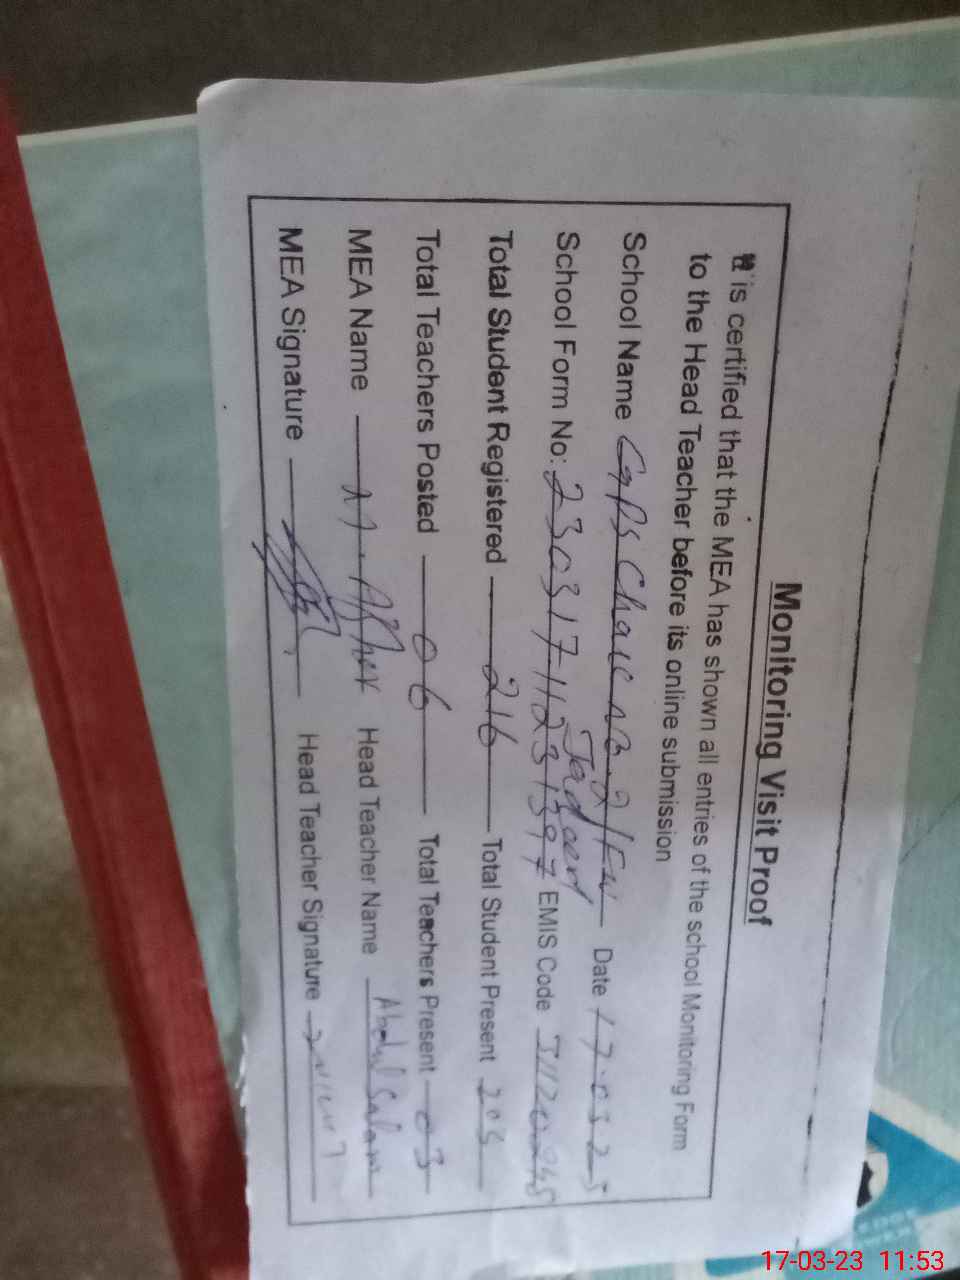 Monitoring Visit Proof
It is certified that the MEA has shown all entries of the school Monitoring Form
to the Head Teacher before its online submission
School Name GPS Chak No. 2/FW Date 17-03-23
Jadeed
School Form No: 230317-11231397 EMIS Code
Total Student Registered 216 Total Student Present 205
Total Teachers Posted 06 Total Teachers Present 03
MEA Name Head Teacher Name Abdul Salam
MEA Signature Head Teacher Signature
17-03-23 11:53